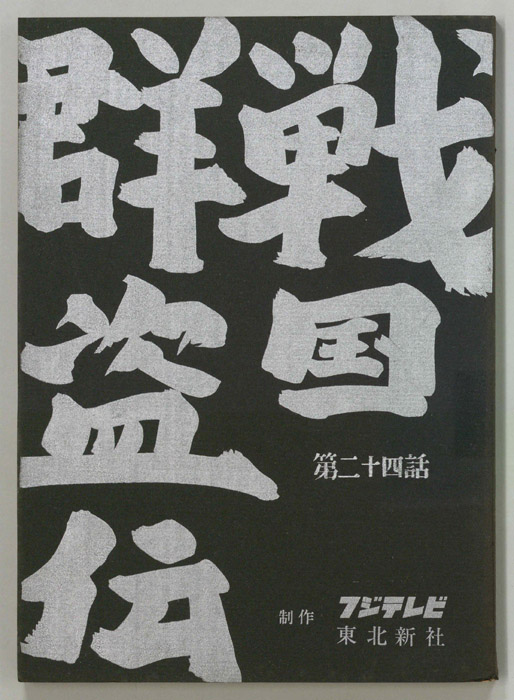 戦国
群盗伝
第二十四話
制作 フジテレビ
東北新社